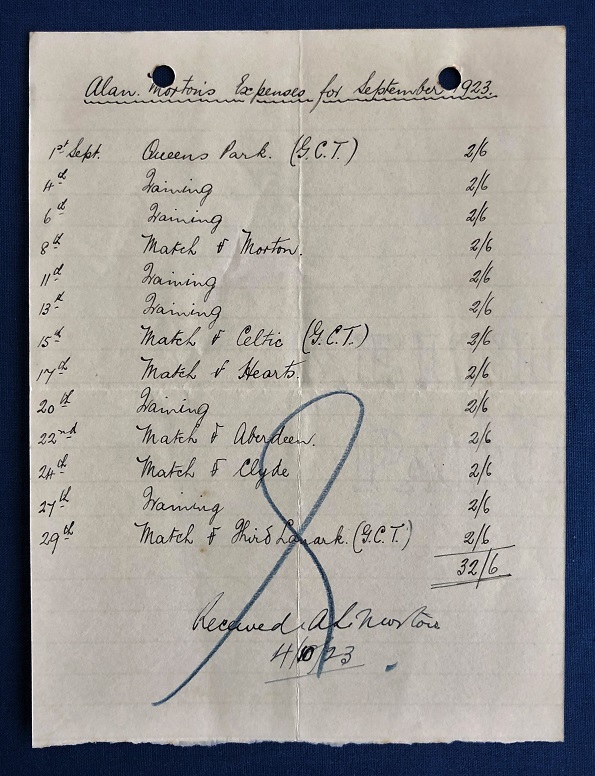 Alan Morton's Expenses for September 1923.
1st Sept. Queens Park. (G.C.T.) 2/6
4th Training 2/6
6th Training 2/6
8th Match v Morton. 2/6
11th Training 2/6
13th Training 2/6
15th Match v Celtic (G.C.T.) 2/6
17th Match v Hearts. 2/6
20th Training 2/6
22nd Match v Aberdeen. 2/6
24th Match v Clyde 2/6
27th Training 2/6
29th Match v Third Lanark. (G.C.T.) 2/6
32/6
Received A L Morton
4/10/23